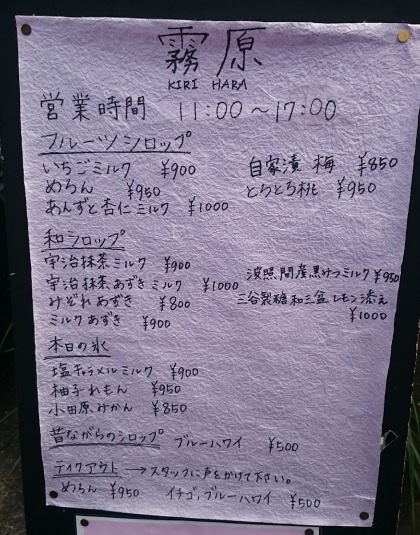 霧原
KIRI HARA
営業時間 11:00～17:00
フルーツシロップ
いちごミルク ¥900
めろん ¥950
あんずと杏仁ミルク ¥1000
自家漬 梅 ¥850
とろとろ桃 ¥950
和シロップ
宇治抹茶ミルク ¥900
宇治抹茶あずきミルク ¥1000
みぞれあずき ¥800
ミルクあずき ¥900
波照間産黒みつミルク ¥950
三谷製糖和三盆レモン添え
¥1000
本日の氷
塩キャラメルミルク ¥900
柚子れもん ¥950
小田原みかん ¥850
昔ながらのシロップ ブルーハワイ ¥500
テイクアウト →スタッフに声をかけて下さい。
めろん ¥950 イチゴ,ブルーハワイ ¥500